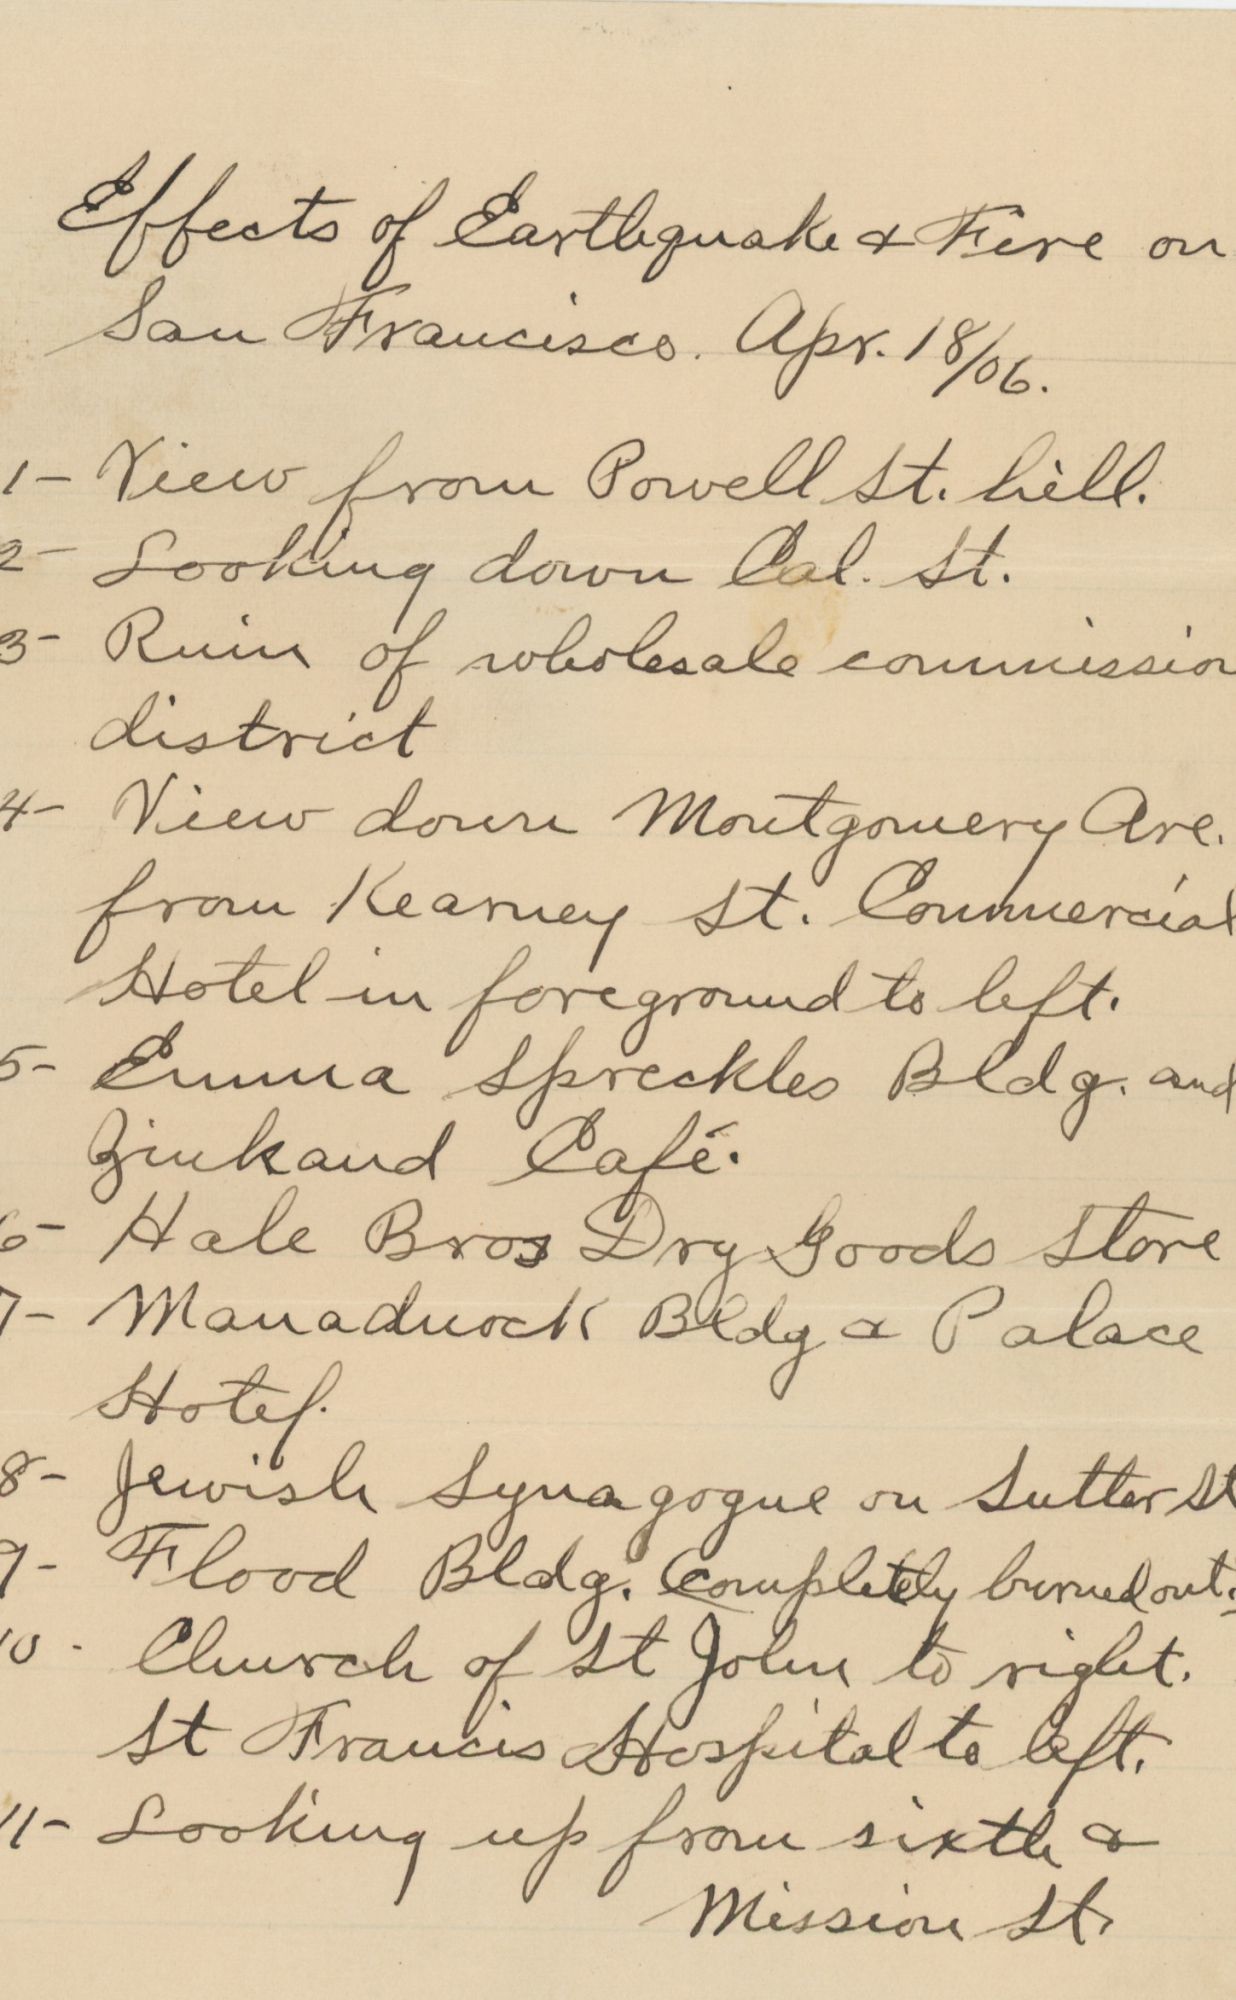 Effects of Earthquake & Fire on
San Francisco. Apr. 18/06.
1- View from Powell St. hill.
2- Looking down Cal. St.
3- Ruin of wholesale commission
district
4- View down Montgomery Ave.
from Kearney St. Commercial
Hotel in foreground to left.
5- Emma Spreckles Bldg. and
Zinkand Café.
6- Hale Bros Dry Goods Store
7- Manadnock Bldg & Palace
Hotel.
8- Jewish Synagogue on Sutter St
9- Flood Bldg. Completely burned out.
10- Church of St John to right.
St Francis Hospital to left.
11- Looking up from sixth &
Mission St.